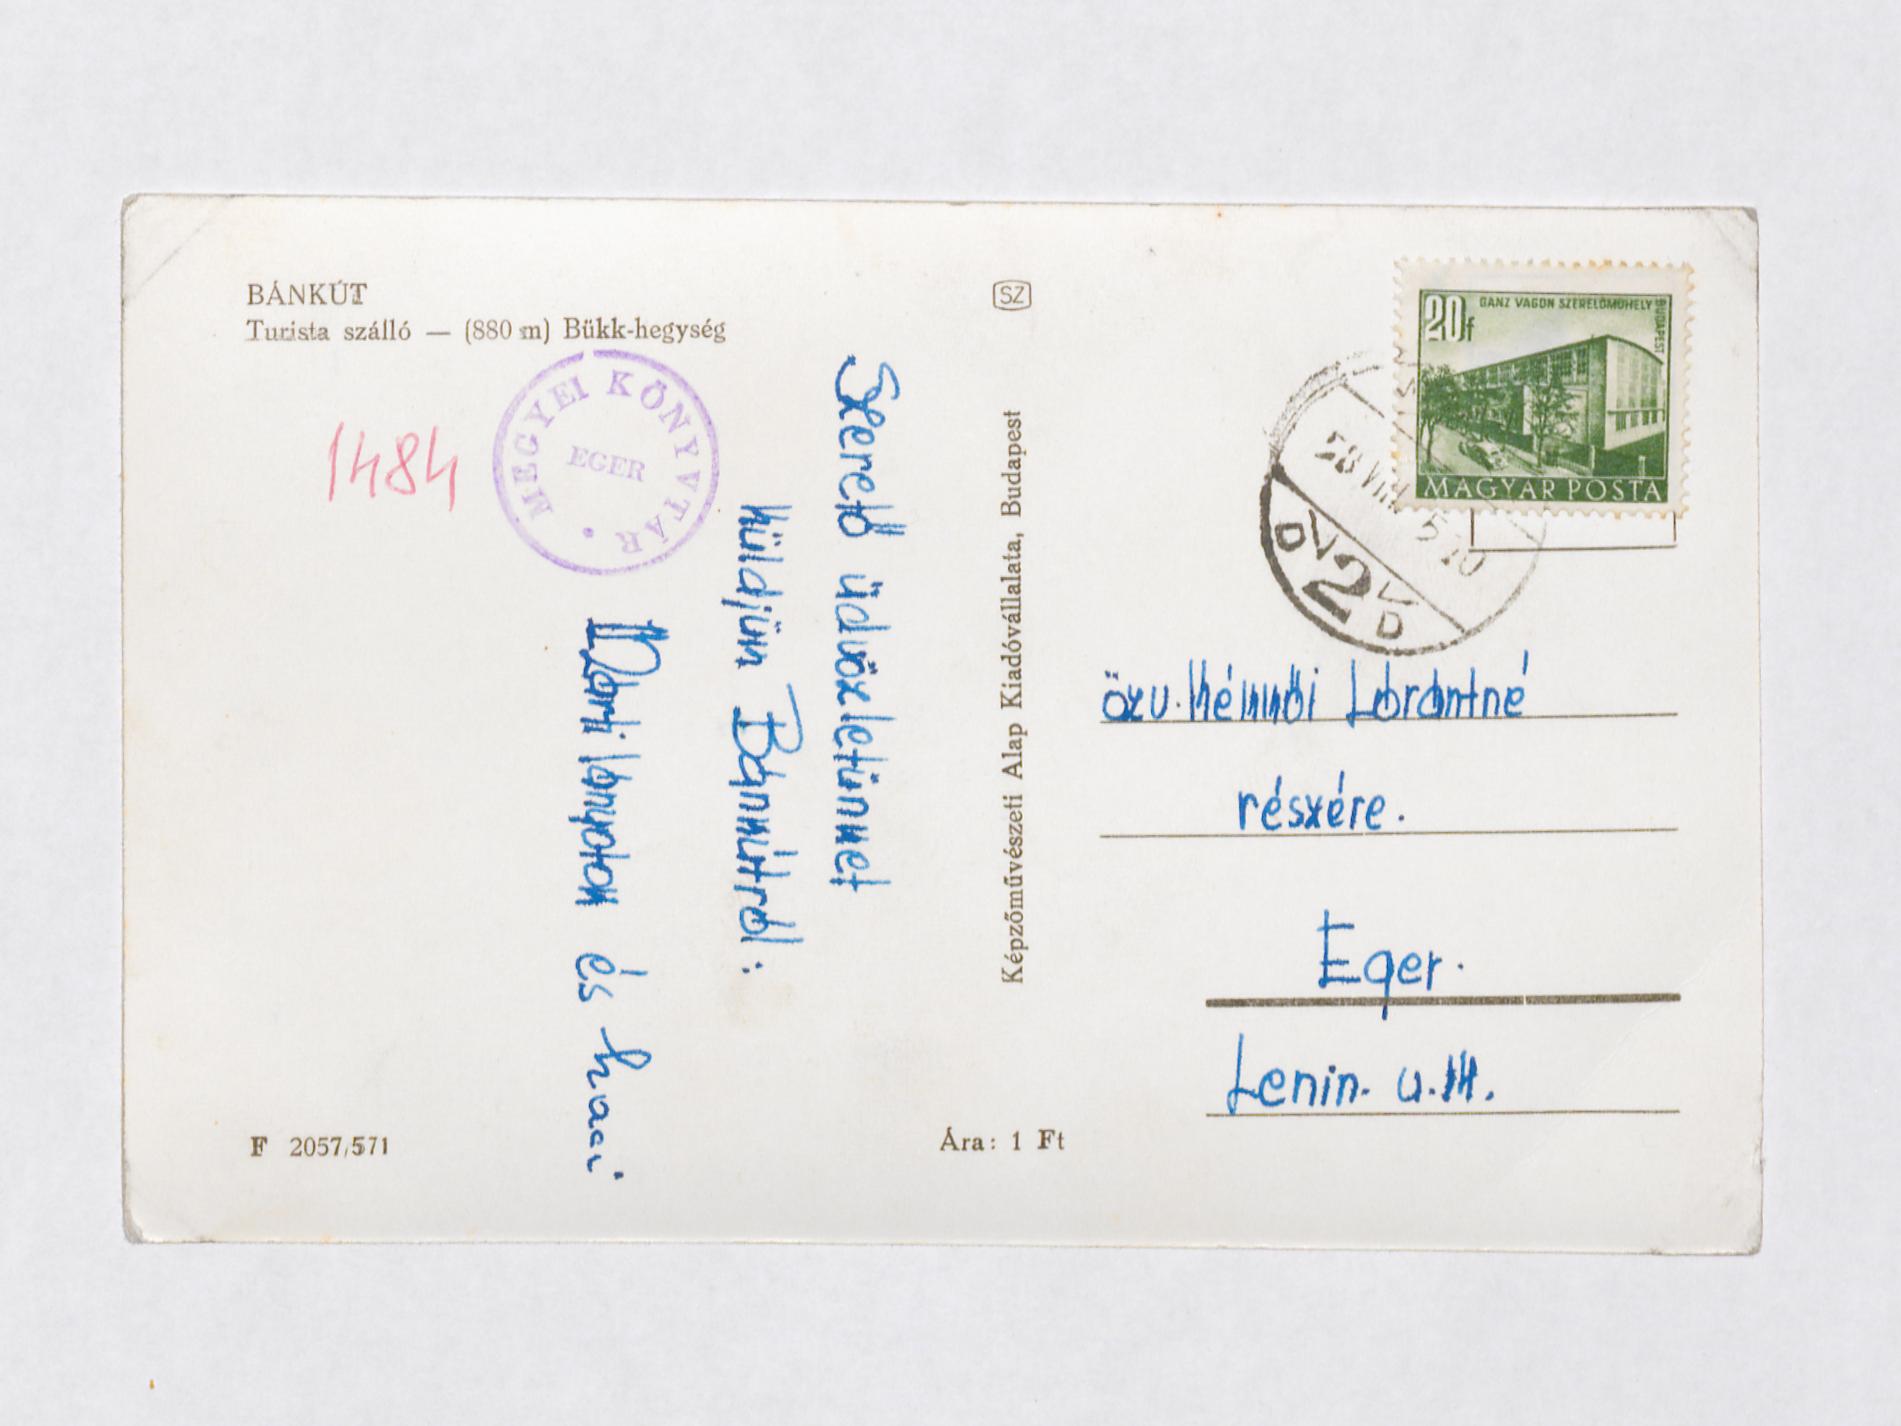 BÁNKÚT
Turista szálló — (880 m) Bükk-hegység
1484
MEGYEI KÖNYVTÁR
EGER
Szerető üdvözletünket
küldjük Bánkútról:
Márti lányotok és
F 2057/571
Ára: 1 Ft
SZ
Képzőművészeti Alap Kiadóvállalata, Budapest
20f
GANZ VAGON SZERELŐMŰHELY BUDAPEST
MAGYAR POSTA
58 VIII
2
özv. Lórántné
részére.
Eger.
Lenin. u.